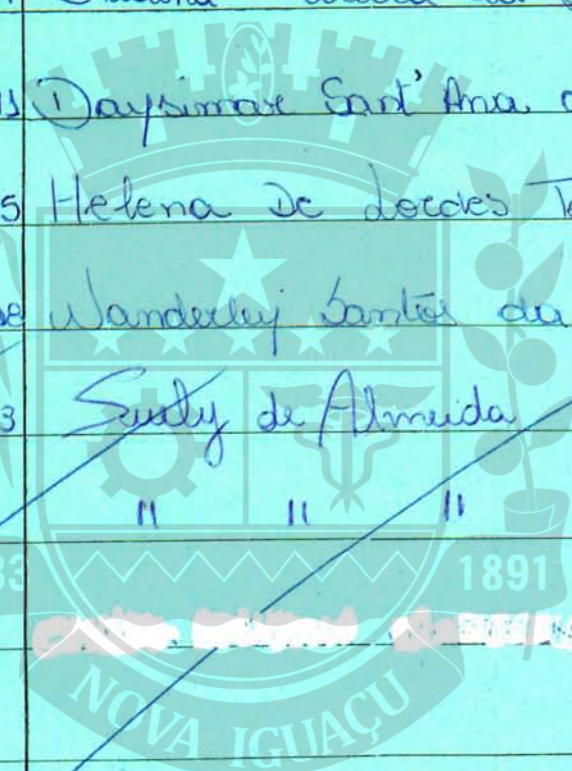 Daysimar Sant' Ana
5 Helena De Lordes
Wanderley Santos da
3 Suely de Almeida
" " "
1891
NOVA IGUAÇU